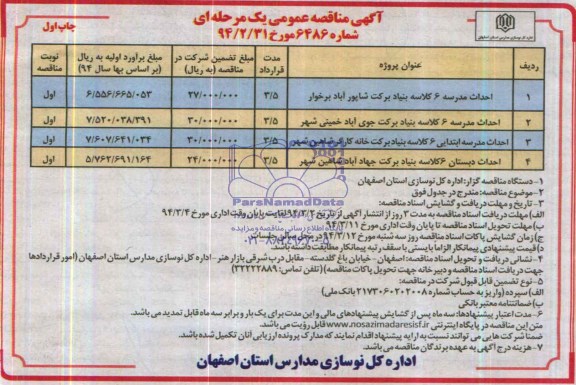 آگهی مناقصه عمومی یک مرحله ای
شماره ۶۴۸۶ مورخ ۹۴/۲/۳۱
چاپ اول
اداره کل نوسازی مدارس استان اصفهان
ردیف عنوان پروژه مدت قرارداد مبلغ تضمین شرکت در مناقصه (به ریال) مبلغ برآورد اولیه به ریال (بر اساس بها سال ۹۴) نوبت مناقصه
۱ احداث مدرسه ۶ کلاسه بنیاد برکت شاپور آباد برخوار ۳/۵ ۲۷/۰۰۰/۰۰۰ ۶/۵۵۶/۶۶۵/۰۵۳ اول
۲ احداث مدرسه ۶ کلاسه بنیاد برکت جوی آباد خمینی شهر ۳/۵ ۳۰/۰۰۰/۰۰۰ ۷/۵۲۰/۰۳۸/۳۹۱ اول
۳ احداث مدرسه ابتدایی ۶ کلاسه بنیاد برکت خانه کارگر شاهین شهر ۳/۵ ۳۰/۰۰۰/۰۰۰ ۷/۶۰۷/۶۴۱/۰۳۴ اول
۴ احداث دبستان ۶ کلاسه بنیاد برکت جهاد آباد شاهین شهر ۳/۵ ۲۴/۰۰۰/۰۰۰ ۵/۷۶۲/۶۹۱/۱۶۴ اول
۱- دستگاه مناقصه گزار: اداره کل نوسازی استان اصفهان
۲- موضوع مناقصه: مندرج در جدول فوق
۳- تاریخ و مهلت دریافت و گشایش اسناد مناقصه:
الف) مهلت دریافت اسناد مناقصه به مدت ۳ روز از انتشار آگهی از تاریخ ۹۴/۳/۲ لغایت پایان وقت اداری مورخ ۹۴/۳/۴
ب) مهلت تحویل اسناد مناقصه تا پایان وقت اداری مورخ ۹۴/۳/۱۱
ج) زمان گشایش پاکات اسناد مناقصه روز سه شنبه مورخ ۹۴/۳/۱۲ در محل سالن جلسات
د) قیمت پیشنهادی پیمانکار الزاما بایستی با سقف رتبه پیمانکار مطابقت داشته باشد.
۴- نشانی دریافت و تحویل اسناد مناقصه: اصفهان - خیابان باغ گلدسته - مقابل درب شرقی بازار هنر - اداره کل نوسازی مدارس استان اصفهان (امور قراردادها
جهت دریافت اسناد مناقصه و دبیرخانه جهت تحویل پاکات مناقصه) (تلفن تماس: ۳۲۲۲۲۸۸۹)
۵- نوع تضمین قابل قبول شرکت در مناقصه:
الف) سپرده (واریز به حساب شماره ۲۱۷۳۰۶۰۲۰۲۰۰۸ بانک ملی)
ب) ضمانتنامه معتبر بانکی
۶- مدت اعتبار پیشنهادها: سه ماه پس از گشایش پیشنهادهای مالی و این مدت برای یک بار و برابر سه ماه قابل تمدید می باشد.
متن این مناقصه در پایگاه اینترنتی www.nosazimadaresisf.ir قابل رؤیت می باشد.
ضمنا شرکت هایی می توانند نسبت به ارایه پیشنهاد اقدام نمایند که مدارک پرونده ارزیابی آنان تکمیل شده باشد.
۷- هزینه درج آگهی به عهده برندگان مناقصه می باشد.
اداره کل نوسازی مدارس استان اصفهان
ParsNamadData